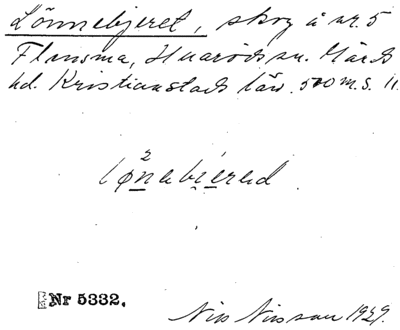 Lönnebjeret, skog å nr. 5
Flinsma, Huaröds sn. Gärds
hd. Kristianstads län. 500 m. S. 11.
2
lønabierad
Nr 5332.
Nils Nilsson 1929.